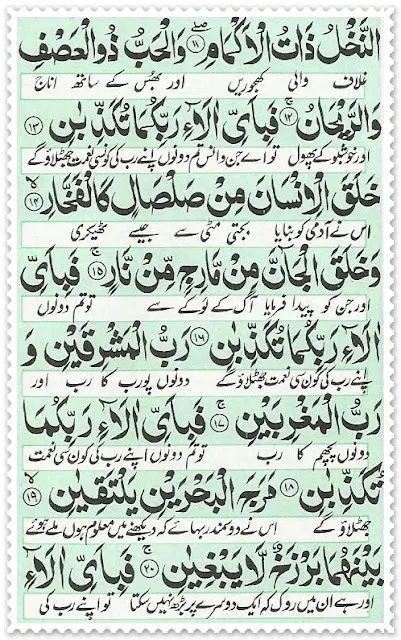 النَّخْلُ ذَاتُ الْاَكْمَامِ ۖ‏ ﴿۱۱﴾ وَالْحَبُّ ذُو الْعَصْفِ
غلاف والی کھجوریں اور بھس کے ساتھ اناج
وَالرَّيْحَانُ ۚ‏ ﴿۱۲﴾ فَبِاَىِّ اٰلَاۤءِ رَبِّكُمَا تُكَذِّبٰنِ ﴿۱۳﴾
اور خوشبو کے پھول تو اے جن و انس تم دونوں اپنے رب کی کونسی نعمت جھٹلاؤ گے
خَلَقَ الْاِنْسَانَ مِنْ صَلْصَالٍ كَالْفَخَّارِ ۙ‏ ﴿۱۴﴾
اس نے آدمی کو بنایا بجتی مٹی سے جیسے ٹھیکری
وَخَلَقَ الْجَاۤنَّ مِنْ مَّارِجٍ مِّنْ نَّارٍ ۚ‏ ﴿۱۵﴾ فَبِاَىِّ
اور جن کو پیدا فرمایا آگ کے لوکے سے تو تم دونوں
اٰلَاۤءِ رَبِّكُمَا تُكَذِّبٰنِ ﴿۱۶﴾ رَبُّ الْمَشْرِقَيْنِ وَ
اپنے رب کی کون سی نعمت جھٹلاؤ گے دونوں پورب کا رب اور
رَبُّ الْمَغْرِبَيْنِ ۚ‏ ﴿۱۷﴾ فَبِاَىِّ اٰلَاۤءِ رَبِّكُمَا
دونوں پچھم کا رب تو تم دونوں اپنے رب کی کون سی نعمت
تُكَذِّبٰنِ ﴿۱۸﴾ مَرَجَ الْبَحْرَيْنِ يَلْتَقِيٰنِ ۙ‏ ﴿۱۹﴾
جھٹلاؤ گے اس نے دو سمندر بہائے کہ دیکھنے میں معلوم ہوں ملے ہوئے
بَيْنَهُمَا بَرْزَخٌ لَّا يَبْغِيٰنِ ۚ‏ ﴿۲۰﴾ فَبِاَىِّ اٰلَاۤءِ
اور ہے ان میں روک کہ ایک دوسرے پر بڑھ نہیں سکتا تو اپنے رب کی